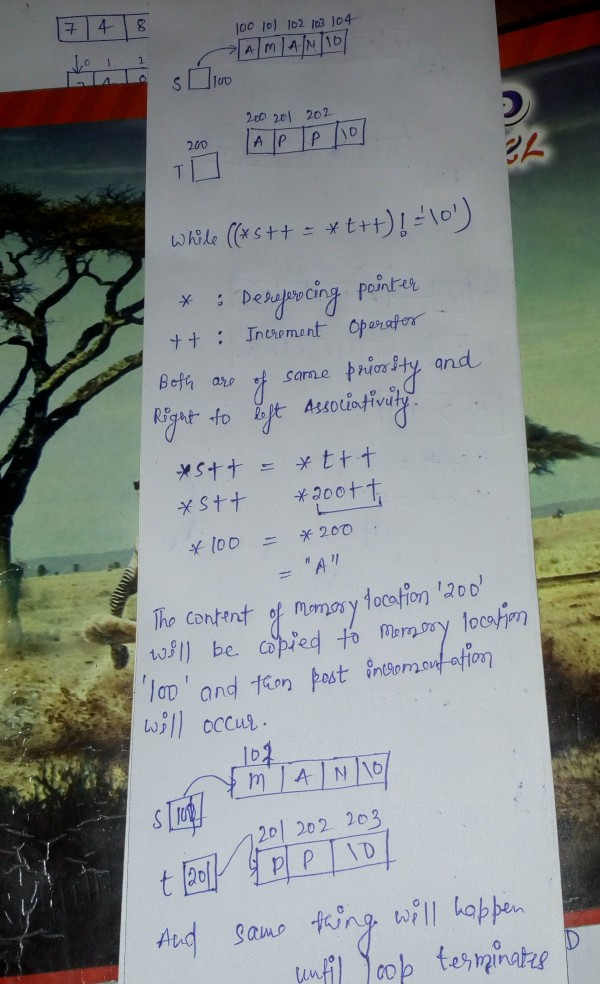 7 4 8
0 1 2
100 101 102 103 104
A M A N \0
S 100
200 201 202
200
A P P \0
T
EL
While ((*s++ = *t++)!='\0')
* : Dereferocing pointer
++ : Increment Operator
Both are of same priority and
Right to left Associativity.
*s++ = *t++
*s++ *200++
*100 = *200
= "A"
The content of memory location '200'
will be copied to memory location
'100' and then post incrementation
will occur.
101
M A N \0
S 101
201 202 203
t 201
P P \0
And same thing will happen
until loop terminates
D